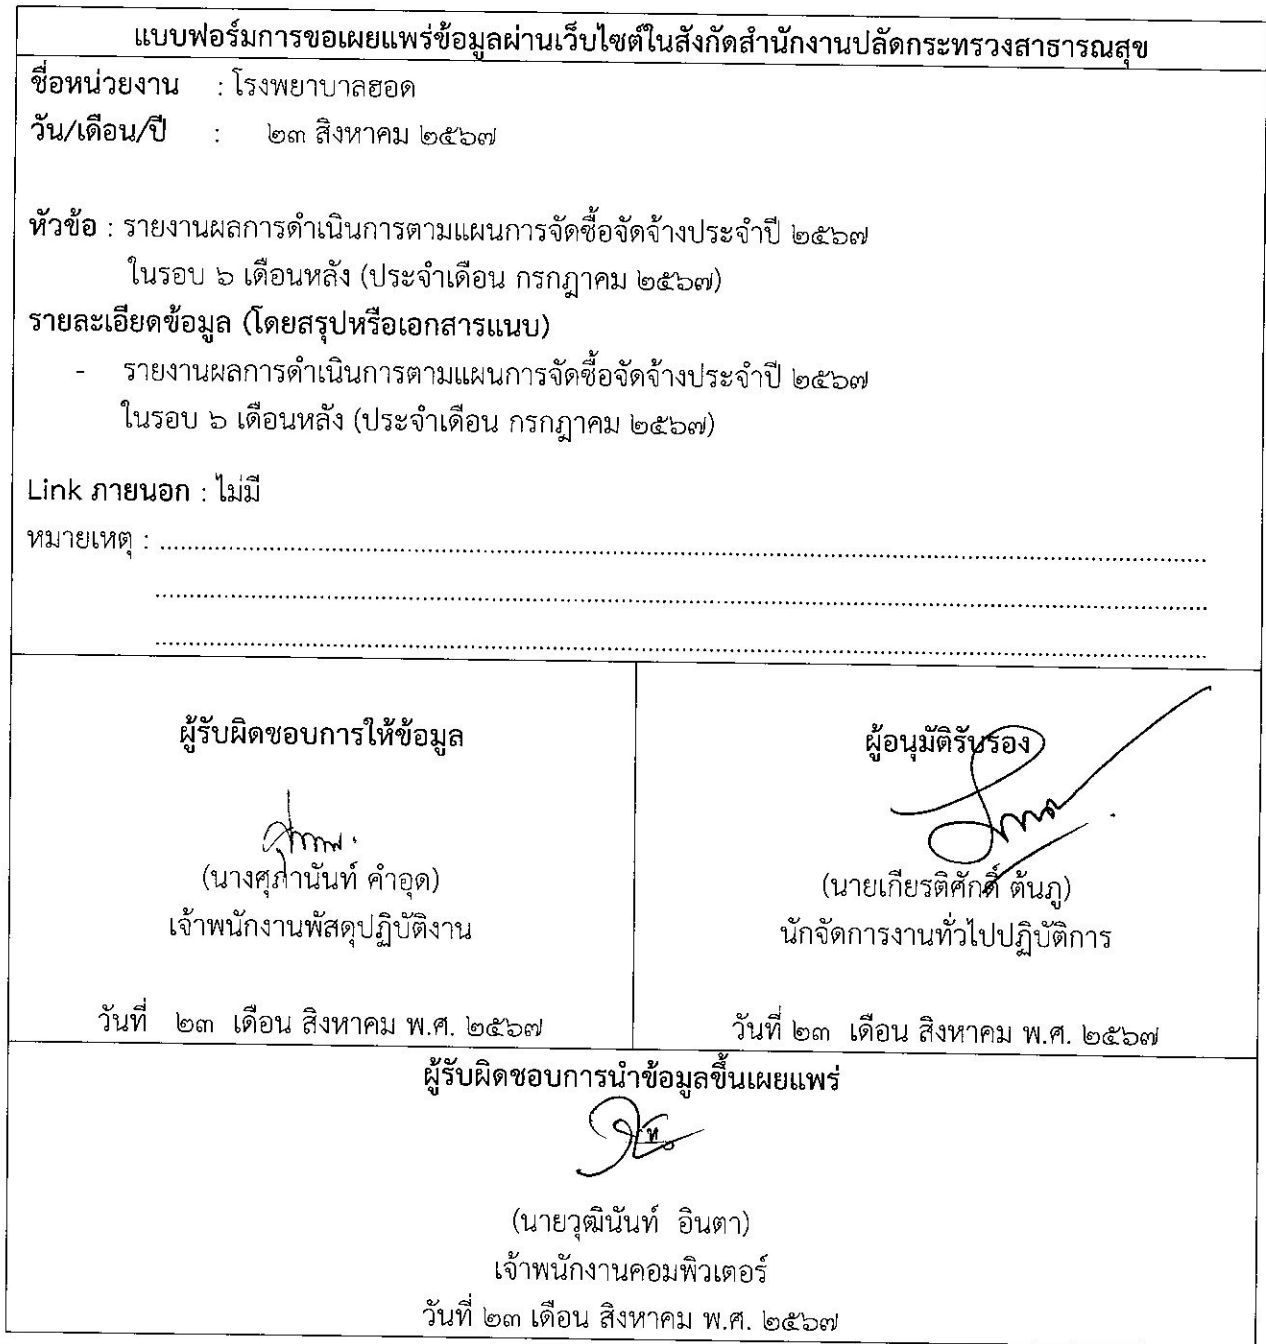 แบบฟอร์มการขอเผยแพร่ข้อมูลผ่านเว็บไซต์ในสังกัดสำนักงานปลัดกระทรวงสาธารณสุข
ชื่อหน่วยงาน : โรงพยาบาลฮอด
วัน/เดือน/ปี : ๒๓ สิงหาคม ๒๕๖๗
หัวข้อ : รายงานผลการดำเนินการตามแผนการจัดซื้อจัดจ้างประจำปี ๒๕๖๗
ในรอบ ๖ เดือนหลัง (ประจำเดือน กรกฎาคม ๒๕๖๗)
รายละเอียดข้อมูล (โดยสรุปหรือเอกสารแนบ)
- รายงานผลการดำเนินการตามแผนการจัดซื้อจัดจ้างประจำปี ๒๕๖๗
ในรอบ ๖ เดือนหลัง (ประจำเดือน กรกฎาคม ๒๕๖๗)
Link ภายนอก : ไม่มี
หมายเหตุ :
ผู้รับผิดชอบการให้ข้อมูล
(นางศุภานันท์ คำอุด)
เจ้าพนักงานพัสดุปฏิบัติงาน
วันที่ ๒๓ เดือน สิงหาคม พ.ศ. ๒๕๖๗
ผู้อนุมัติรับรอง
(นายเกียรติศักดิ์ ต้นภู)
นักจัดการงานทั่วไปปฏิบัติการ
วันที่ ๒๓ เดือน สิงหาคม พ.ศ. ๒๕๖๗
ผู้รับผิดชอบการนำข้อมูลขึ้นเผยแพร่
(นายวุฒินันท์ อินตา)
เจ้าพนักงานคอมพิวเตอร์
วันที่ ๒๓ เดือน สิงหาคม พ.ศ. ๒๕๖๗